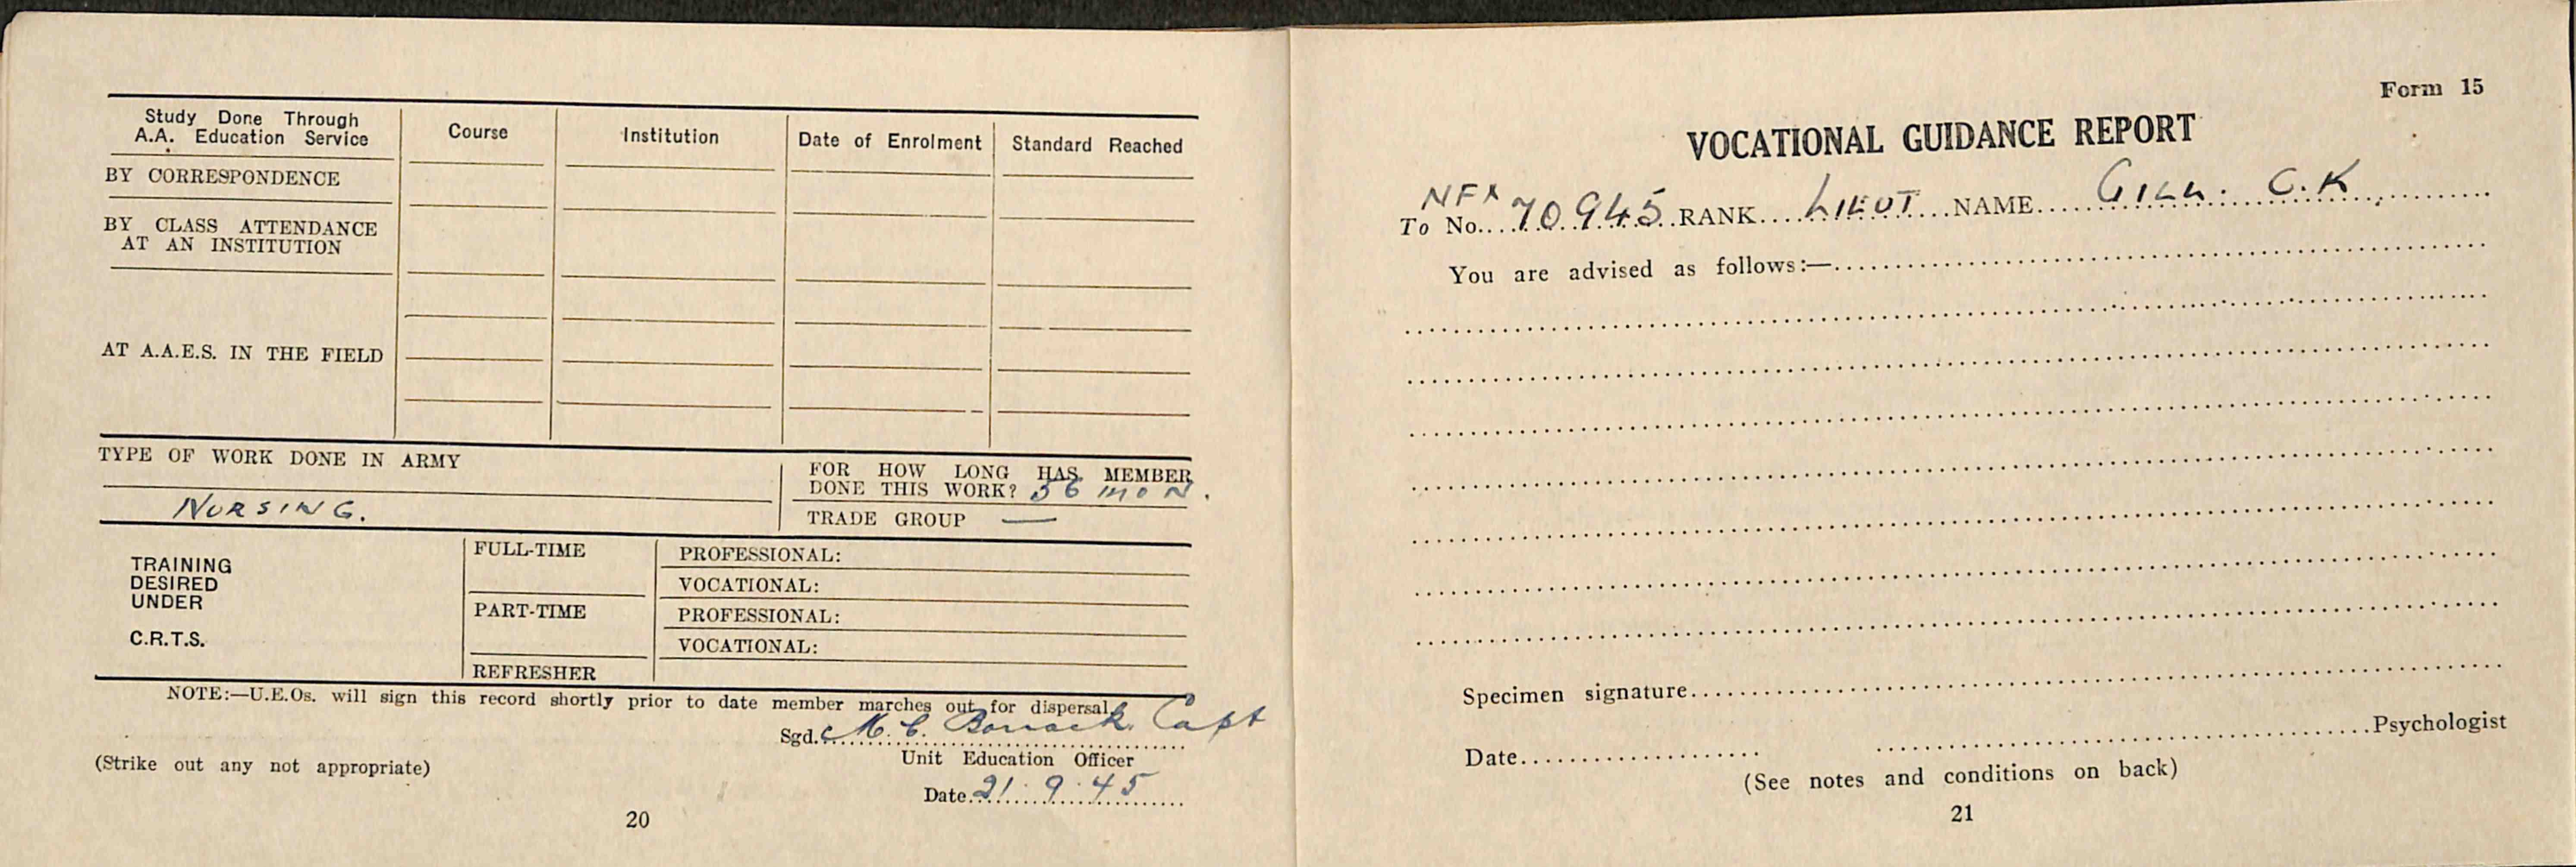 Study Done Through A.A. Education Service
Course
Institution
Date of Enrolment
Standard Reached
BY CORRESPONDENCE
BY CLASS ATTENDANCE
AT AN INSTITUTION
AT A.A.E.S. IN THE FIELD
TYPE OF WORK DONE IN ARMY
NURSING.
FOR HOW LONG HAS MEMBER
DONE THIS WORK? 56 MON.
TRADE GROUP —
TRAINING
DESIRED
UNDER
C.R.T.S.
FULL-TIME
PROFESSIONAL:
VOCATIONAL:
PART-TIME
PROFESSIONAL:
VOCATIONAL:
REFRESHER
NOTE:—U.E.Os. will sign this record shortly prior to date member marches out for dispersal
Sgd. M. C. Capt
Unit Education Officer
(Strike out any not appropriate)
Date 21.9.45
20
Form 15
VOCATIONAL GUIDANCE REPORT
To No. NFX 70945 RANK LIEUT NAME GILL. C.K
You are advised as follows:—
Specimen signature
Date
Psychologist
(See notes and conditions on back)
21